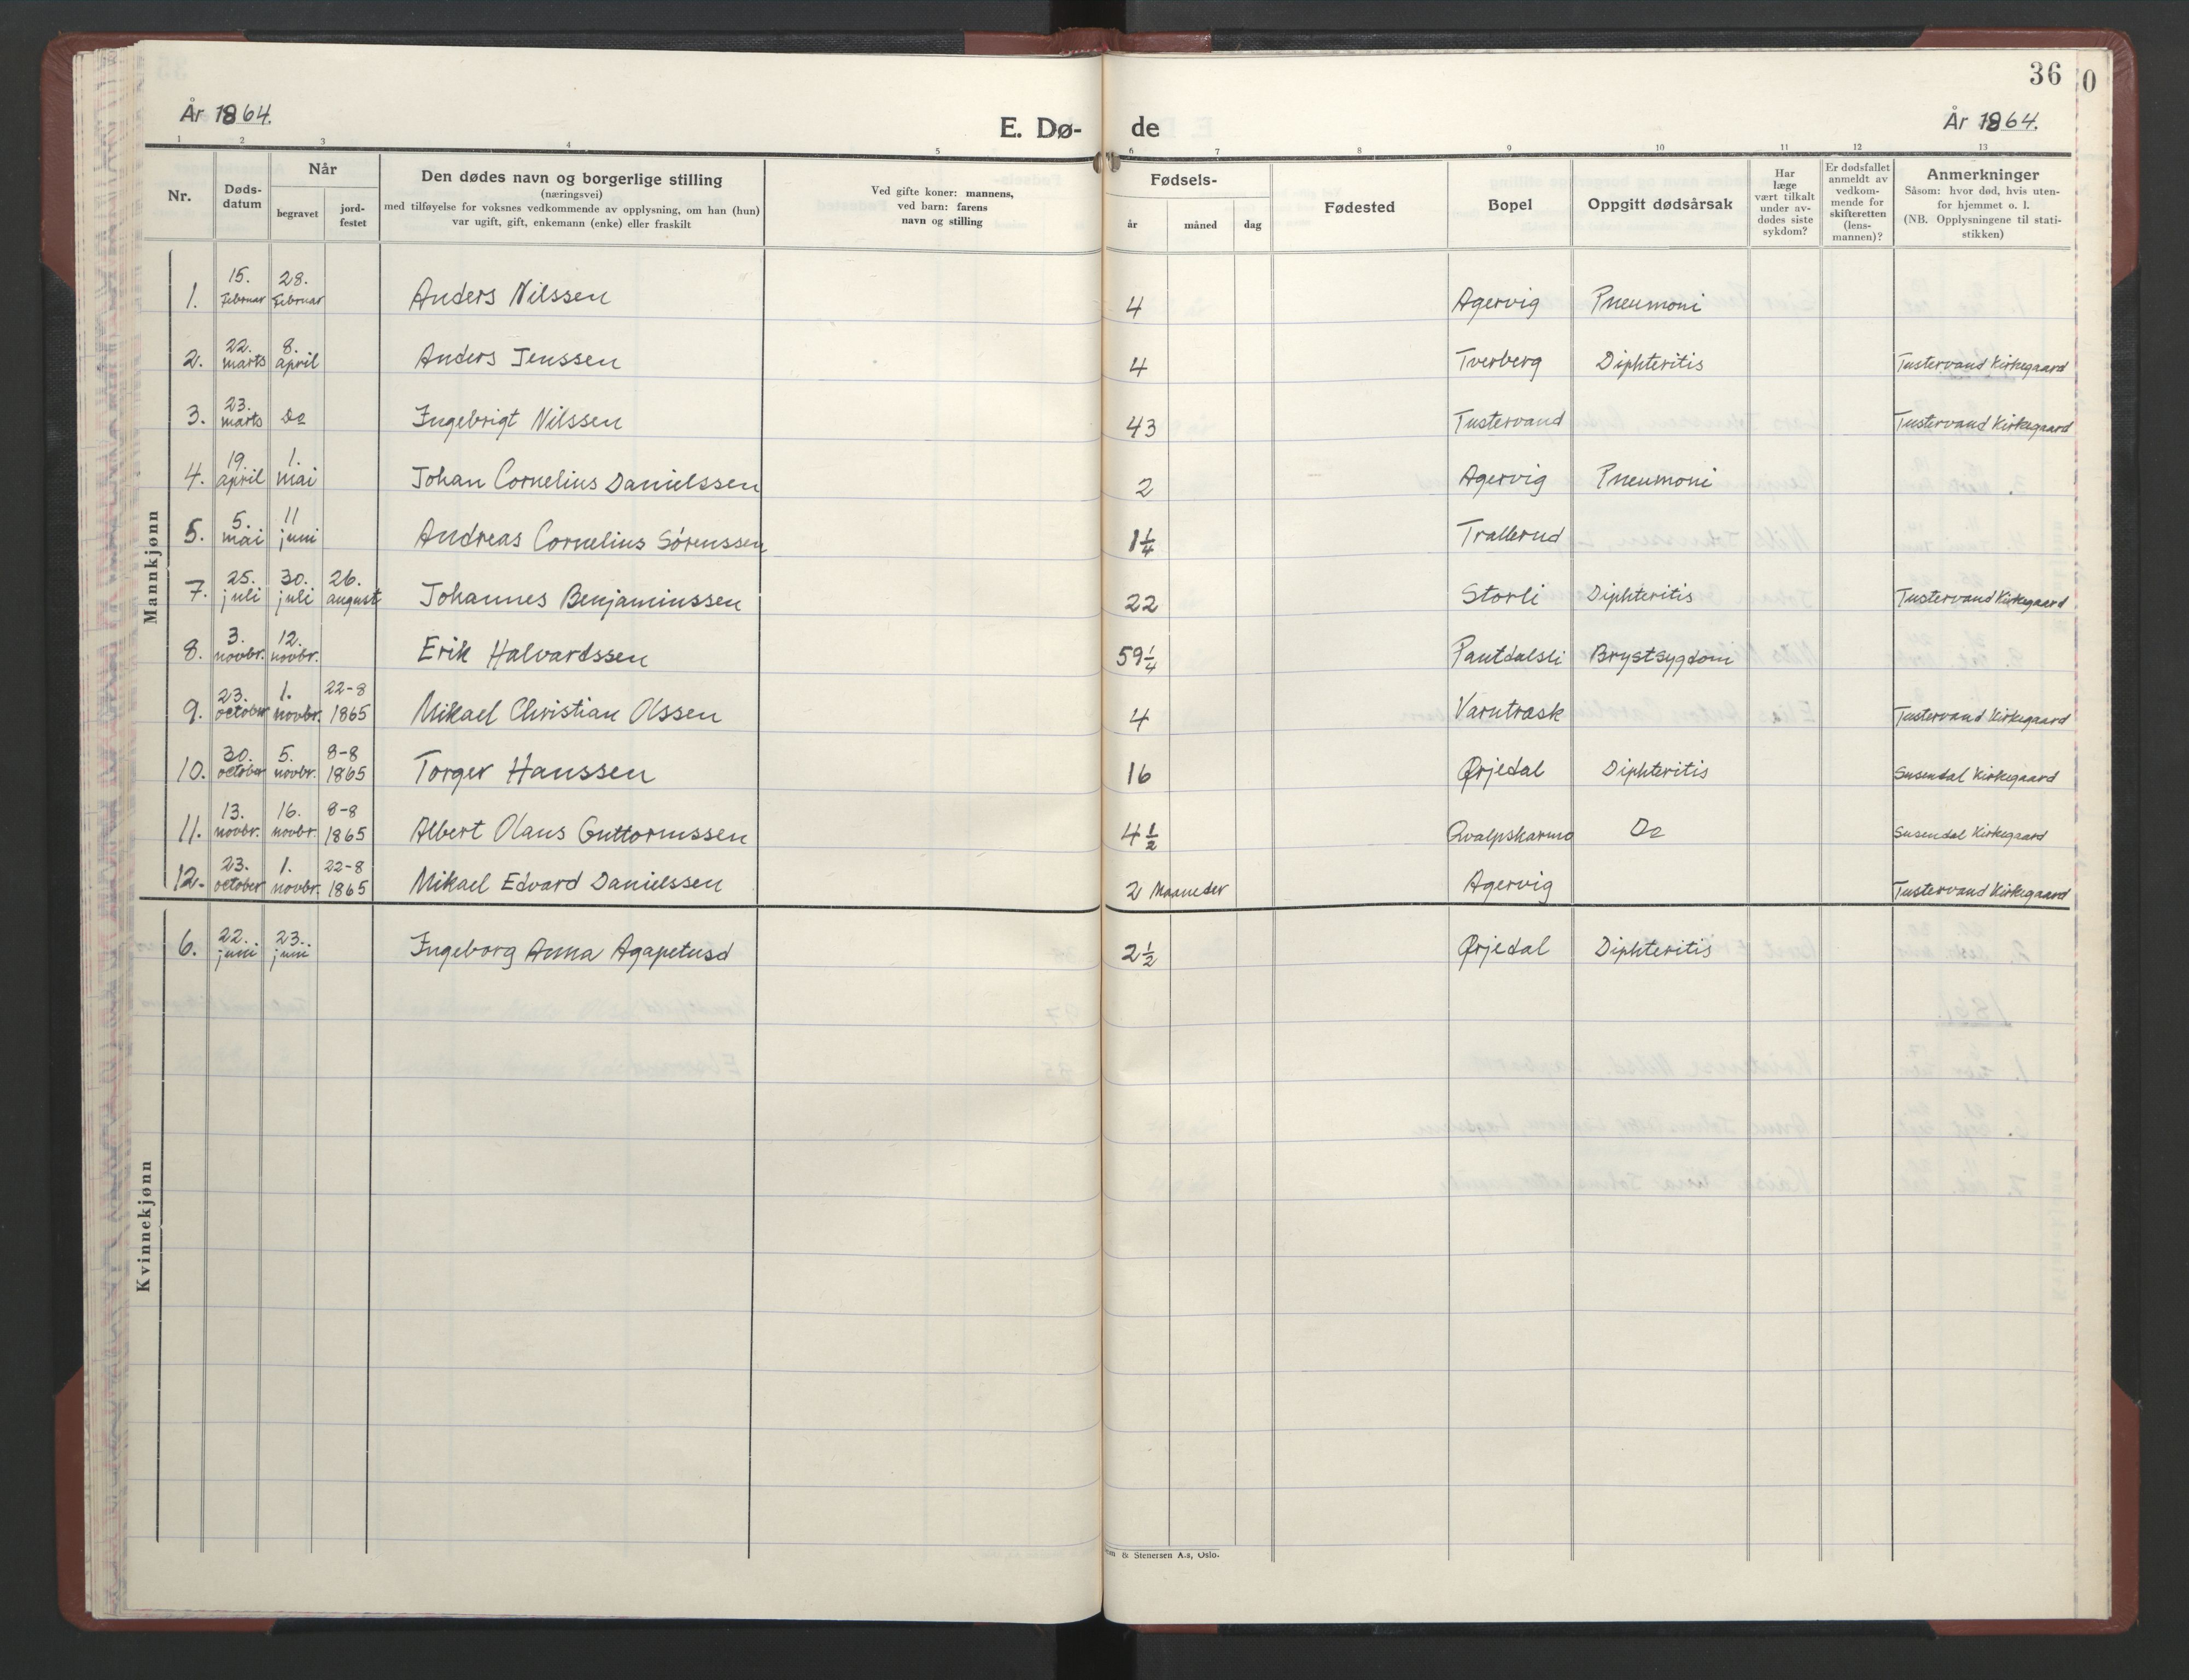 36
0
År 1864.
E. Dø-
de
År 1864.
1 2 3 4 5 6 7 8 9 10 11 12 13
Nr.
Døds-
datum
Når
begravet
jord-
festet
Den dødes navn og borgerlige stilling
(næringsvei)
med tilføyelse for voksnes vedkommende av opplysning, om han (hun)
var ugift, gift, enkemann (enke) eller fraskilt
Ved gifte koner: mannens,
ved barn: farens
navn og stilling
Fødsels-
år
måned
dag
Fødested
Bopel
Oppgitt dødsårsak
Har
læge
vært tilkalt
under av-
dødes siste
sykdom?
Er dødsfallet
anmeldt av
vedkom-
mende for
skifteretten
(lens-
mannen)?
Anmerkninger
Såsom: hvor død, hvis uten-
for hjemmet o. l.
(NB. Opplysningene til stati-
stikken)
Mannkjønn
1. 15. Februar 28. Februar Anders Nilssen 4 Agervig Pneumoni
2. 22. marts 8. april Anders Jenssen 4 Tverberg Diphteritis Tustervand Kirkegaard
3. 23. marts Do Ingebrigt Nilssen 43 Tustervand Tustervand Kirkegaard
4. 19. april 1. mai Johan Cornelius Danielssen 2 Agervig Pneumoni
5. 5. mai 11 juni Andreas Cornelius Sørenssen 1 1/4 Trallerud
7. 25. juli 30. juli 26. august Johannes Benjaminssen 22 Storli Diphteritis Tustervand Kirkegaard
8. 3. novbr. 12. novbr. Erik Halvardssen 59 1/4 Pantdalsli Brystsygdom
9. 23. october 1. novbr. 22-8 1865 Mikael Christian Olssen 4 Varntrask Tustervand Kirkegaard
10. 30. october 5. novbr. 8-8 1865 Torger Hanssen 16 Ørjedal Diphteritis Susendal Kirkegaard
11. 13. novbr. 16. novbr. 8-8 1865 Albert Olaus Guttormssen 4 1/2 Qvalpskarmo Do Susendal Kirkegaard
12. 23. october 1. novbr. 22-8 1865 Mikael Edvard Danielssen 2 Maaneder Agervig Tustervand Kirkegaard
Kvinnekjønn
6. 22. juni 23. juni Ingeborg Anna Agapetusd 2 1/2 Ørjedal Diphteritis
& Stenersen A.s, Oslo.